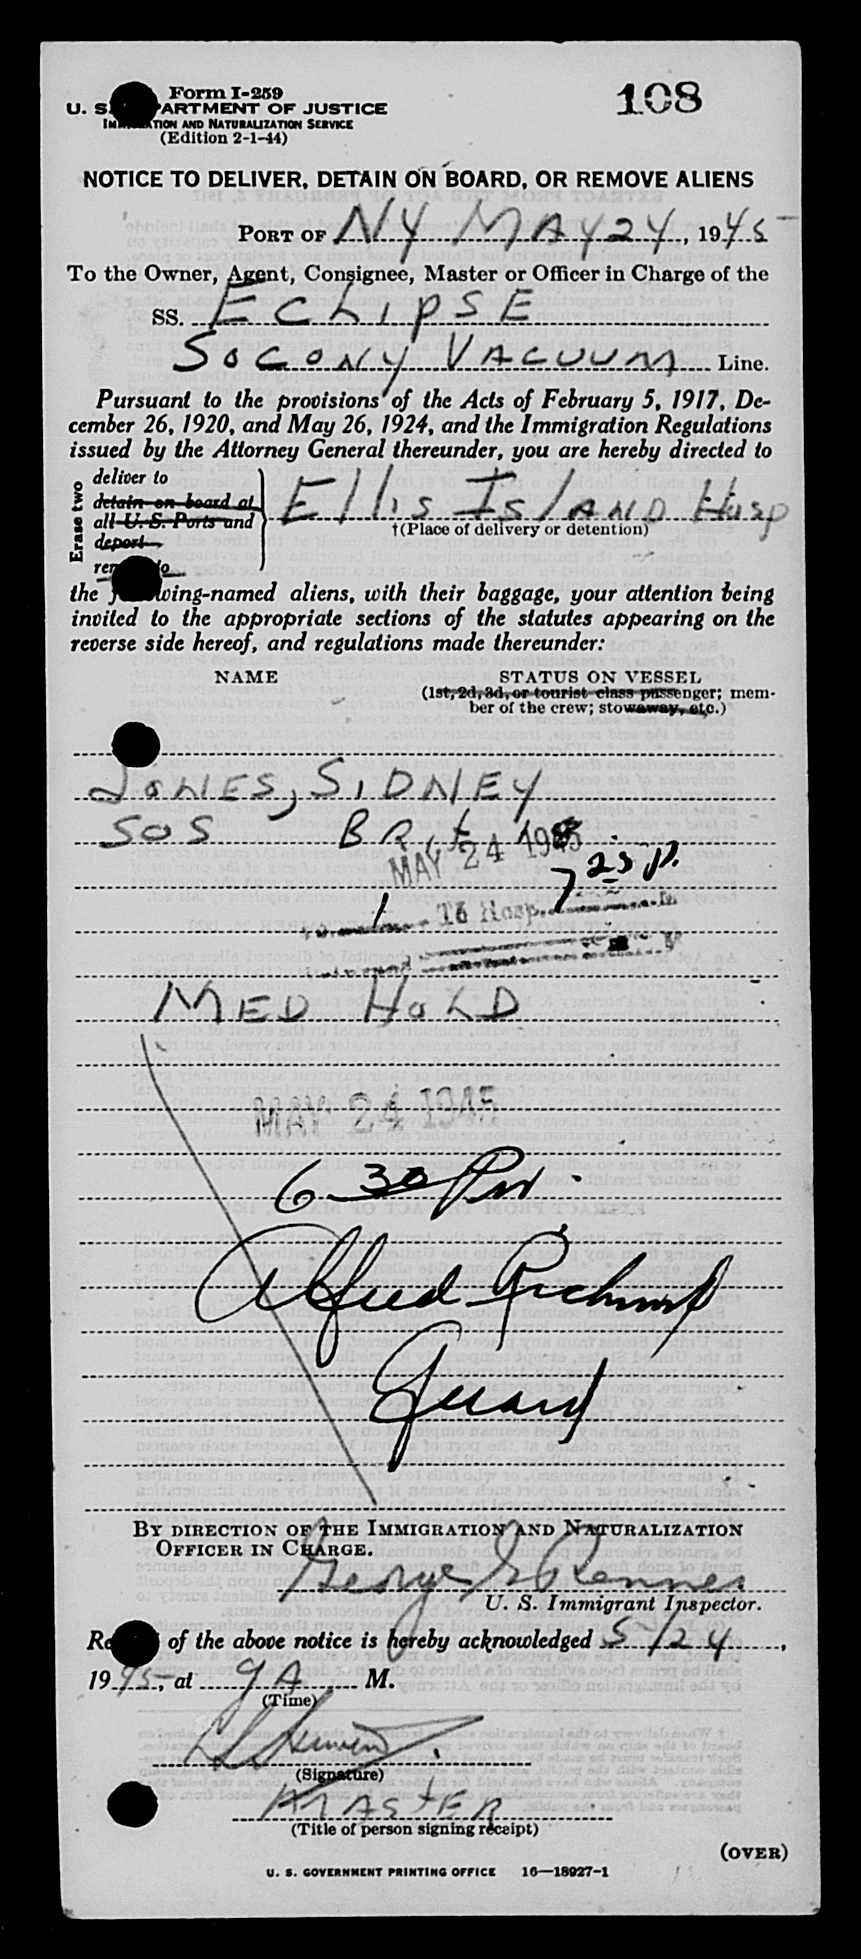 Form I-259
108
U. S. DEPARTMENT OF JUSTICE
IMMIGRATION AND NATURALIZATION SERVICE
(Edition 2-1-44)
NOTICE TO DELIVER, DETAIN ON BOARD, OR REMOVE ALIENS
PORT OF NY MAY 24, 1945
To the Owner, Agent, Consignee, Master or Officer in Charge of the
SS. ECLIPSE
SOCONY VACUUM Line.
Pursuant to the provisions of the Acts of February 5, 1917, De-
cember 26, 1920, and May 26, 1924, and the Immigration Regulations
issued by the Attorney General thereunder, you are hereby directed to
Erase two
deliver to
detain on board at
all U. S. Ports and
deport
remove to
Ellis Island Hosp
†(Place of delivery or detention)
the following-named aliens, with their baggage, your attention being
invited to the appropriate sections of the statutes appearing on the
reverse side hereof, and regulations made thereunder:
NAME
STATUS ON VESSEL
(1st, 2d, 3d, or tourist class passenger; mem-
ber of the crew; stowaway, etc.)
JONES, SIDNEY
SOS BRit
MAY 24 1945
7 25 P.
1 To Hosp.
MED HOLD
MAY 24 1945
6 30 PM.
Alfred
Guard
BY DIRECTION OF THE IMMIGRATION AND NATURALIZATION
OFFICER IN CHARGE.
George
U. S. Immigrant Inspector.
Receipt of the above notice is hereby acknowledged 5/24,
1945, at 9 A M.
(Time)
(Signature)
MASTER
(Title of person signing receipt)
(OVER)
U. S. GOVERNMENT PRINTING OFFICE 16—18927-1